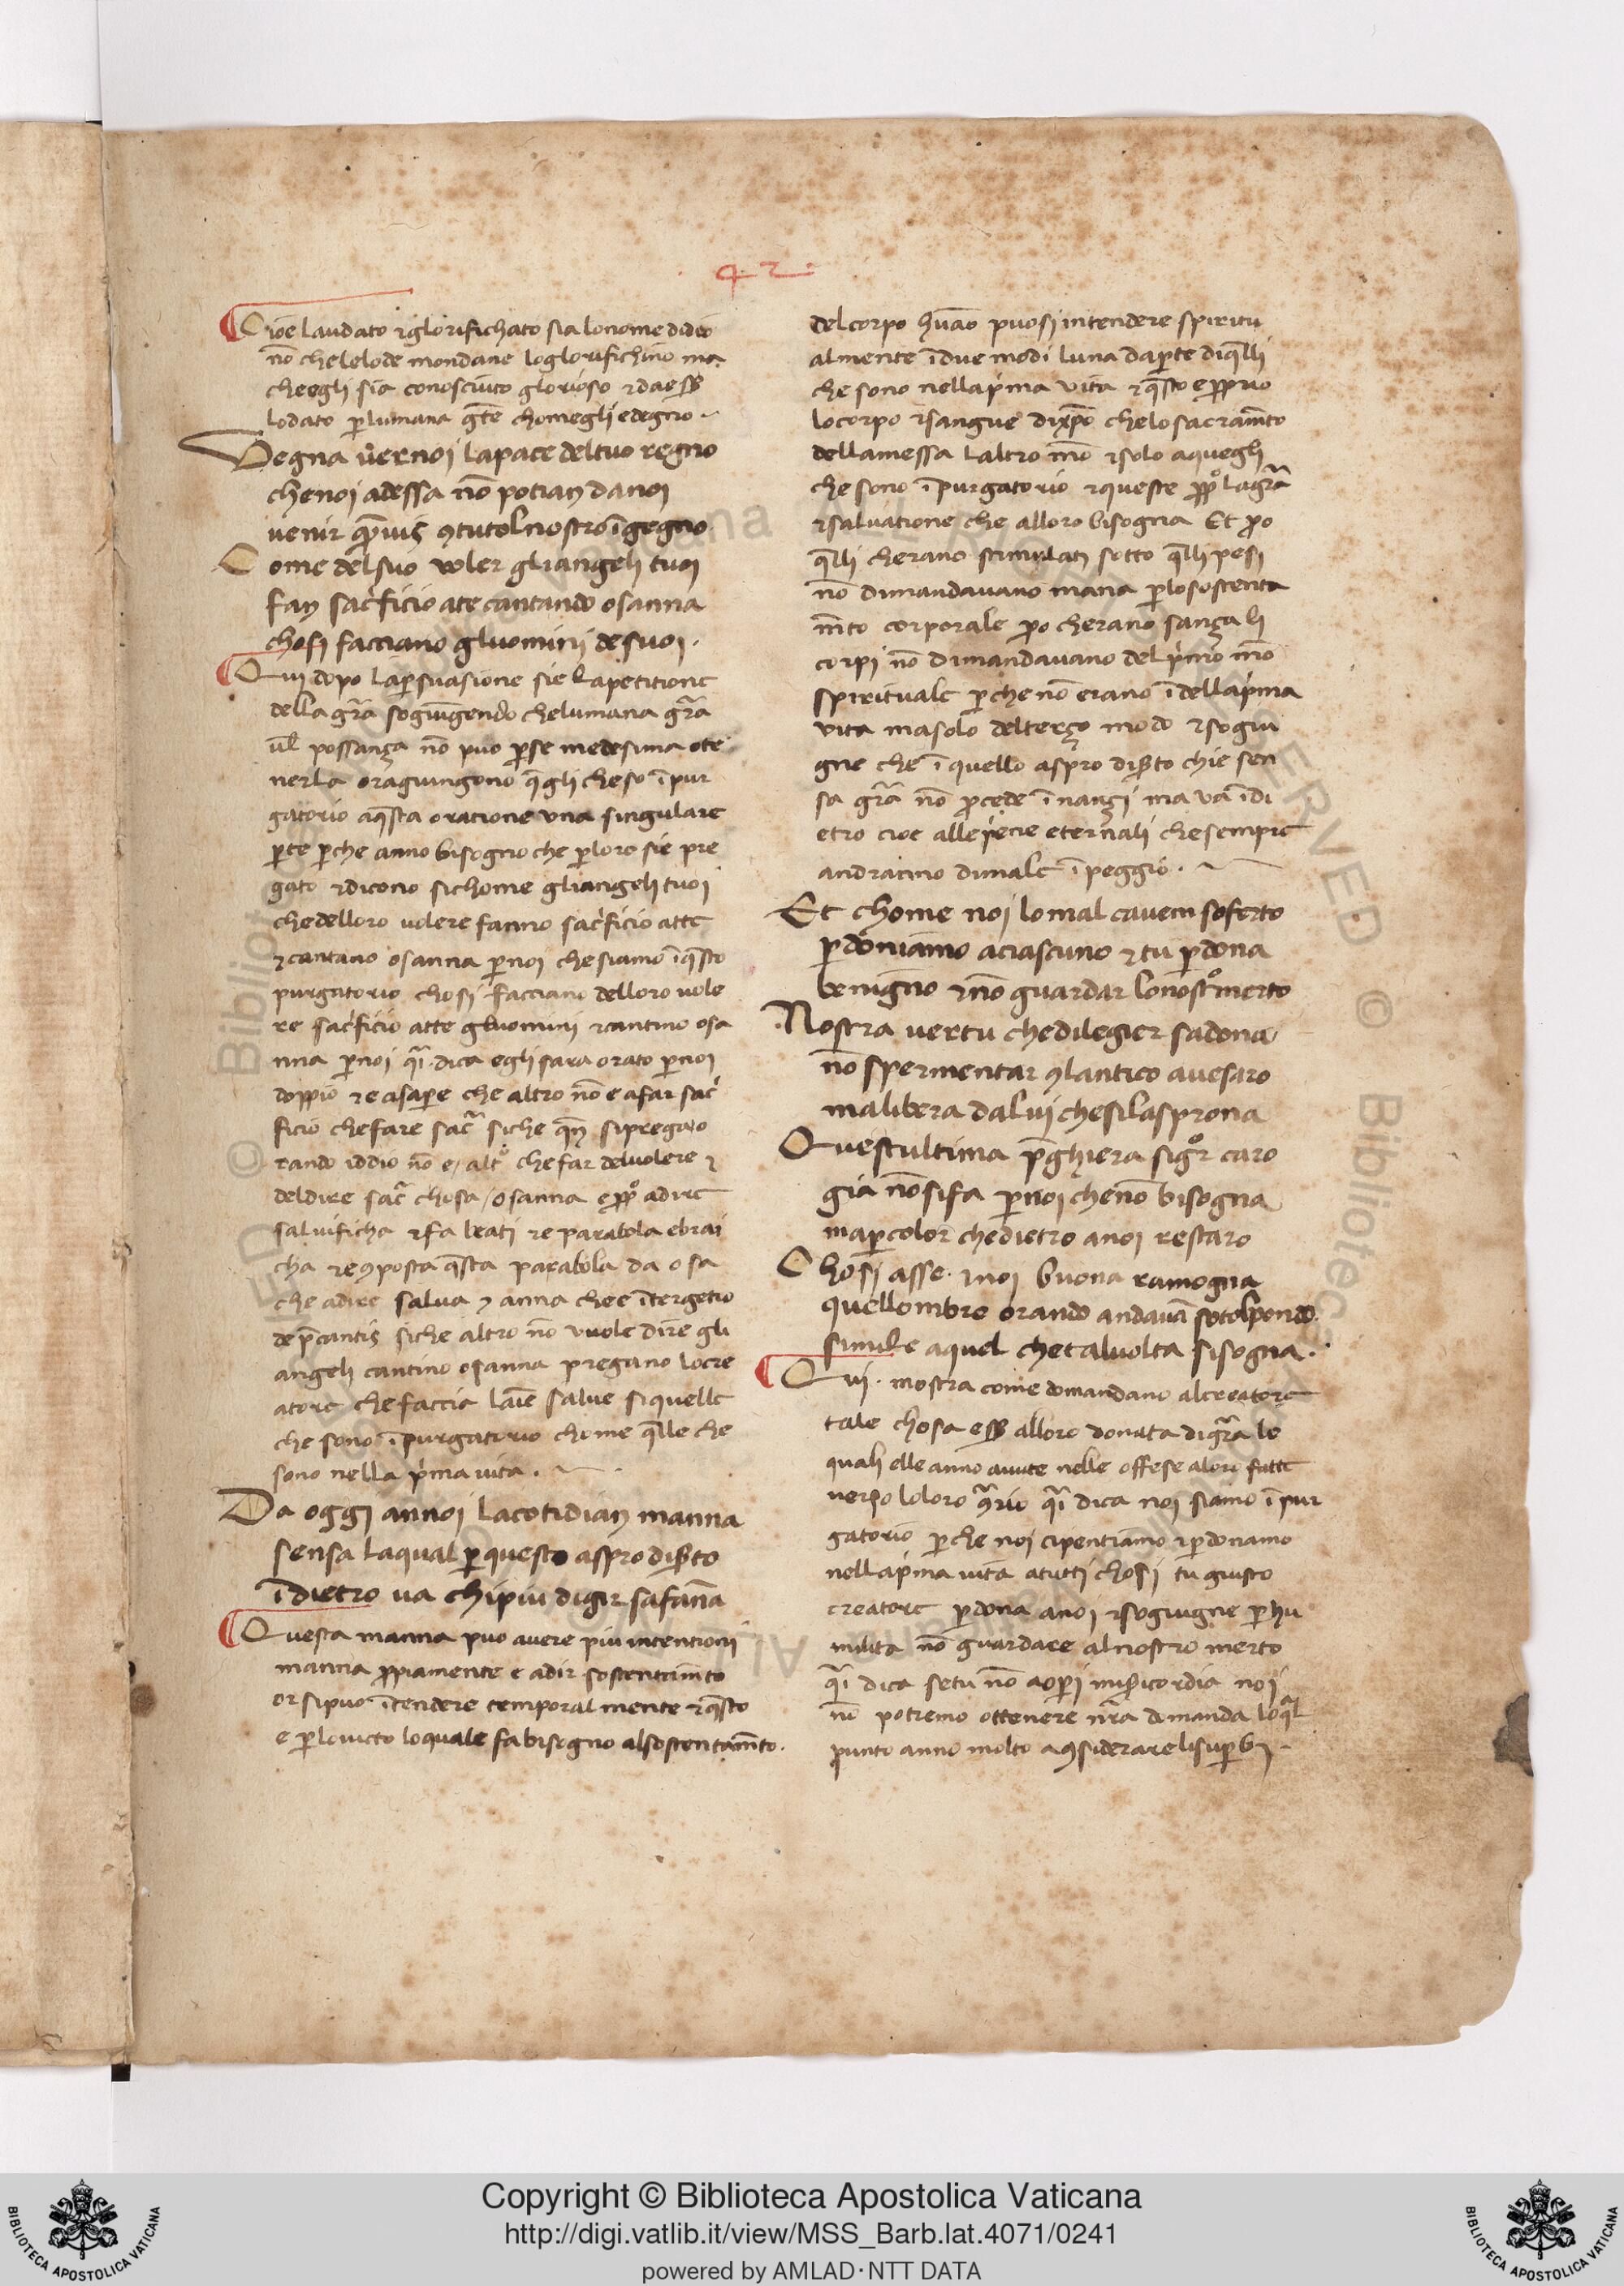 42
Cioe laudato ⁊ glorifichato sia lonome didio
nō chelelode mondane loglorifichino ma
cheegli sia conosciuto glorioso ⁊ da
lodato ꝑlumana gēte chomegli edegno
Vegna v̄ernoj lapace deltuo regno
chenoj adessa nō potian danoj
uenir ꝯtutolnostro īgegno
Come delsuo voler gliangelj tuoj
fan sac̍ficio ate cantando osanna
chosi facciano gluominj desuoj.
Quj dopo laꝑsuasione sie lapetitione
della gr̄a sogiūgendo chelumana gr̄a
possança nō puo ꝑse medesima ote
nerla oragiungono q̄gli cheso īpur
gatorio aq̄sta oratione una singulare
ꝑte ꝑche anno bisogno che ꝑloro sie pre
gato ⁊dicono sichome gliangelj tuoj
chedelloro volere fanno sac̍ficio atte
⁊cantano osanna ꝑnoj chesiamo īq̄sto
purgatorio chosi facciano delloro vole
re sac̍ficio atte gluominj ⁊cantino osa
nna ꝑnoj q̄i dica egli sara orato ꝑnoj
doppio ⁊e asaꝑe che altro nō e afar sac̍
ficio chefare sac̄ siche siprega o
rando iddio nō e altº chefar deluolere ⁊
deldire sac̄ chosa osanna adire
saluificha ⁊fa beati ⁊e parabola ebrai
cha ⁊eꝯposta q̄sta parabola da osa
che adire salua ⁊ anna chee ītergetio
dep̄cantis siche altro nō vuole dire gli
angelj cantino osanna pregano locre
atore chefaccia laīe salue siquelle
che sono īpurgatorio chome q̄lle che
sono nella p̍ma uita.
Da oggi annoj lacotidian manna
sensa laqual ꝑquesto aspro dißto
īdietro ua chipiu digir safāna
Questa manna puo auere piu intentionj
manna ꝓpiamente e adir sostentam̄to
or sipuo ītendere temporal mente ⁊q̄sto
e ꝑlouicto loquale fabisogno alsostentam̄to.
delcorpo hūāo puosi intendere spiritu
almente īdue modi luna daꝑte diq̄lli
che sono nellap̍ma vita ⁊q̄sto eꝓprio
locorpo ⁊sangue dixp̄o chelosacram̄to
dellamessa laltro mō ⁊solo aquegli
che sono īpurgatorio ⁊queste lagr̄a
⁊saluatione che alloro bisogna Et ꝑo
q̄lli cherano stimulati sotto q̄lli pesi
nō dimandauano mana ꝑlosostenta
m̄to corporale ꝑo cherano sança li
corpi nō dimandauano delp̍mo mō
spirituale ꝑchenō erano īdellap̍ma
vita masolo delterço modo ⁊sogiu
gne che īquello aspro dißto chie sen
sa gr̄a nō ꝓcede īnançi ma va īdi
etro cioe alle pene eternali chesempre
andranno dimale īpeggio.
Et chome noj lomal cauem soferto
ꝑdoniamo aciascuno ⁊tu ꝑdona
benigno ⁊nō guardar lonostº merto
Nostra uertu chedilegier sadona
nō spermentar ꝯlantico auesaro
malibera dalui chesilasprona
Questultima p̄ghiera sigºr caro
gia nōsifa ꝑnoi chenō bisogna
maꝑcolor chedietro anoj restaro
Chosi asse ⁊noj buona ramogna
quellombre orando andauā sotolpondo.
simile aquel chetaluolta sisogna.
Quj. mostra come domandano alcreatore
tale chosa eß alloro donata digr̄a le
quali elle anno auute nelle offese alor fatte
uerso loloro q̄i dica noj siamo īpur
gatorio ꝑche noj cipentiamo ⁊ꝑdonamo
nellap̍ma uita atutti chosi tu giusto
creatore ꝑdona anoj ⁊sogiugne ꝑhu
milita nō guardare alnostro merto
q̄i dica setu nō aoꝑi mis̄icordia noj
nō potremo ottenere nr̄a domanda
punto anno molto aꝯsiderare lisuꝑbj.
© Biblioteca Apostolica Vaticana ALL RIGHTS RESERVED
Copyright © Biblioteca Apostolica Vaticana
http://digi.vatlib.it/view/MSS_Barb.lat.4071/0241
powered by AMLAD·NTT DATA
BIBLIOTECA APOSTOLICA VATICANA
BIBLIOTECA APOSTOLICA VATICANA